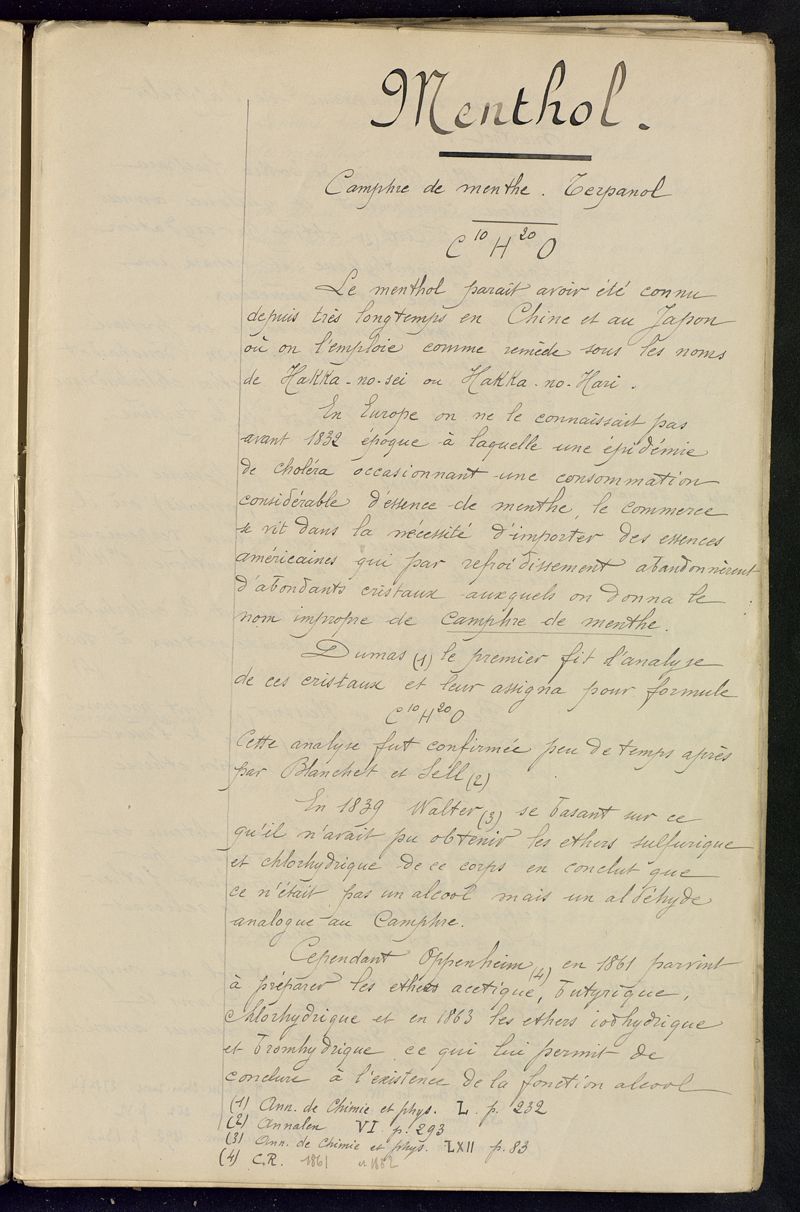 Menthol.
Camphre de menthe. Terpanol
C¹⁰H²⁰O
Le menthol parait avoir été connu
depuis très longtemps en Chine et au Japon
où on l'emploie comme remède sous les noms
de Hakka-no-sei ou Hakka-no-Hari.
En Europe on ne le connaissait pas
avant 1832 époque à laquelle une épidémie
de choléra occasionnant une consommation
considérable d'essence de menthe, le commerce
se vit dans la nécessité d'importer des essences
américaines qui par refroidissement abandonnèrent
d'abondants cristaux auxquels on donna le
nom impropre de Camphre de menthe.
Dumas (1) le premier fit l'analyse
de ces cristaux et leur assigna pour formule
C¹⁰H²⁰O
Cette analyse fut confirmée peu de temps après
par Blanchet et Sell (2)
En 1839 Walter (3) se basant sur ce
qu'il n'avait pu obtenir les ethers sulfurique
et chlorhydrique de ce corps en conclut que
ce n'était pas un alcool mais un aldéhyde
analogue au Camphre.
Cependant Oppenheim (4) en 1861 parvint
à préparer les ethers acetique, butyrique,
chlorhydrique et en 1863 les ethers iodhydrique
et bromhydrique ce qui lui permit de
conclure à l'existence de la fonction alcool
(1) Ann. de Chimie et phys. L. p. 232
(2) Annalen VI p. 293
(3) Ann. de Chimie et phys. LXII p. 83
(4) C.R. 1861